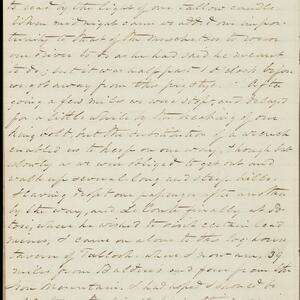 to read by the light of one tallow candle.
When midnight came we added our impor-
tunity to that of the moschetoes to
our driver to do as he had said he meant
to do; but it was half past 1 o'clock before
we got away from this prestige. After
going a few miles we were stopt and delayed
for a little while by the breaking of our
king bolt, but the substitution of a wrench
enabled us to keep on our way, though but
slowly as we were obliged to get out and
walk up several long and steep hills.
Having dropt one passenger after another
by the way, and Le Conte finally at
where he wished to visit certain lead
mines, I came on alone to this log house
tavern of Tulloch, where I now am, 39
miles from and four from the
Iron Mountain. I had hoped I should be